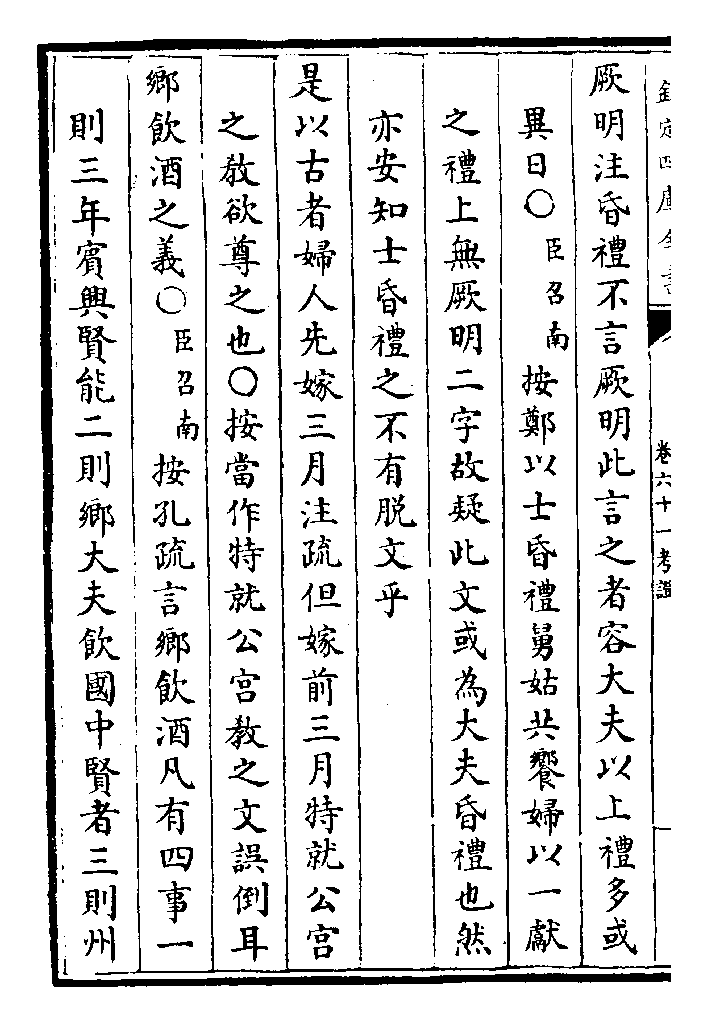 欽定四庫全書
卷六十一考證
厥明注昏禮不言厥明此言之者容大夫以上禮多或
異日〇臣召南按鄭以士昏禮舅姑共饗婦以一獻
之禮上無厥明二字故疑此文或為大夫昏禮也然
亦安知士昏禮之不有脱文乎
是以古者婦人先嫁三月注疏但嫁前三月特就公宫
之敎欲尊之也〇按當作特就公宫敎之文誤倒耳
鄉飲酒之義〇臣召南按孔疏言鄉飲酒凡有四事一
則三年賓興賢能二則鄉大夫飲國中賢者三則州